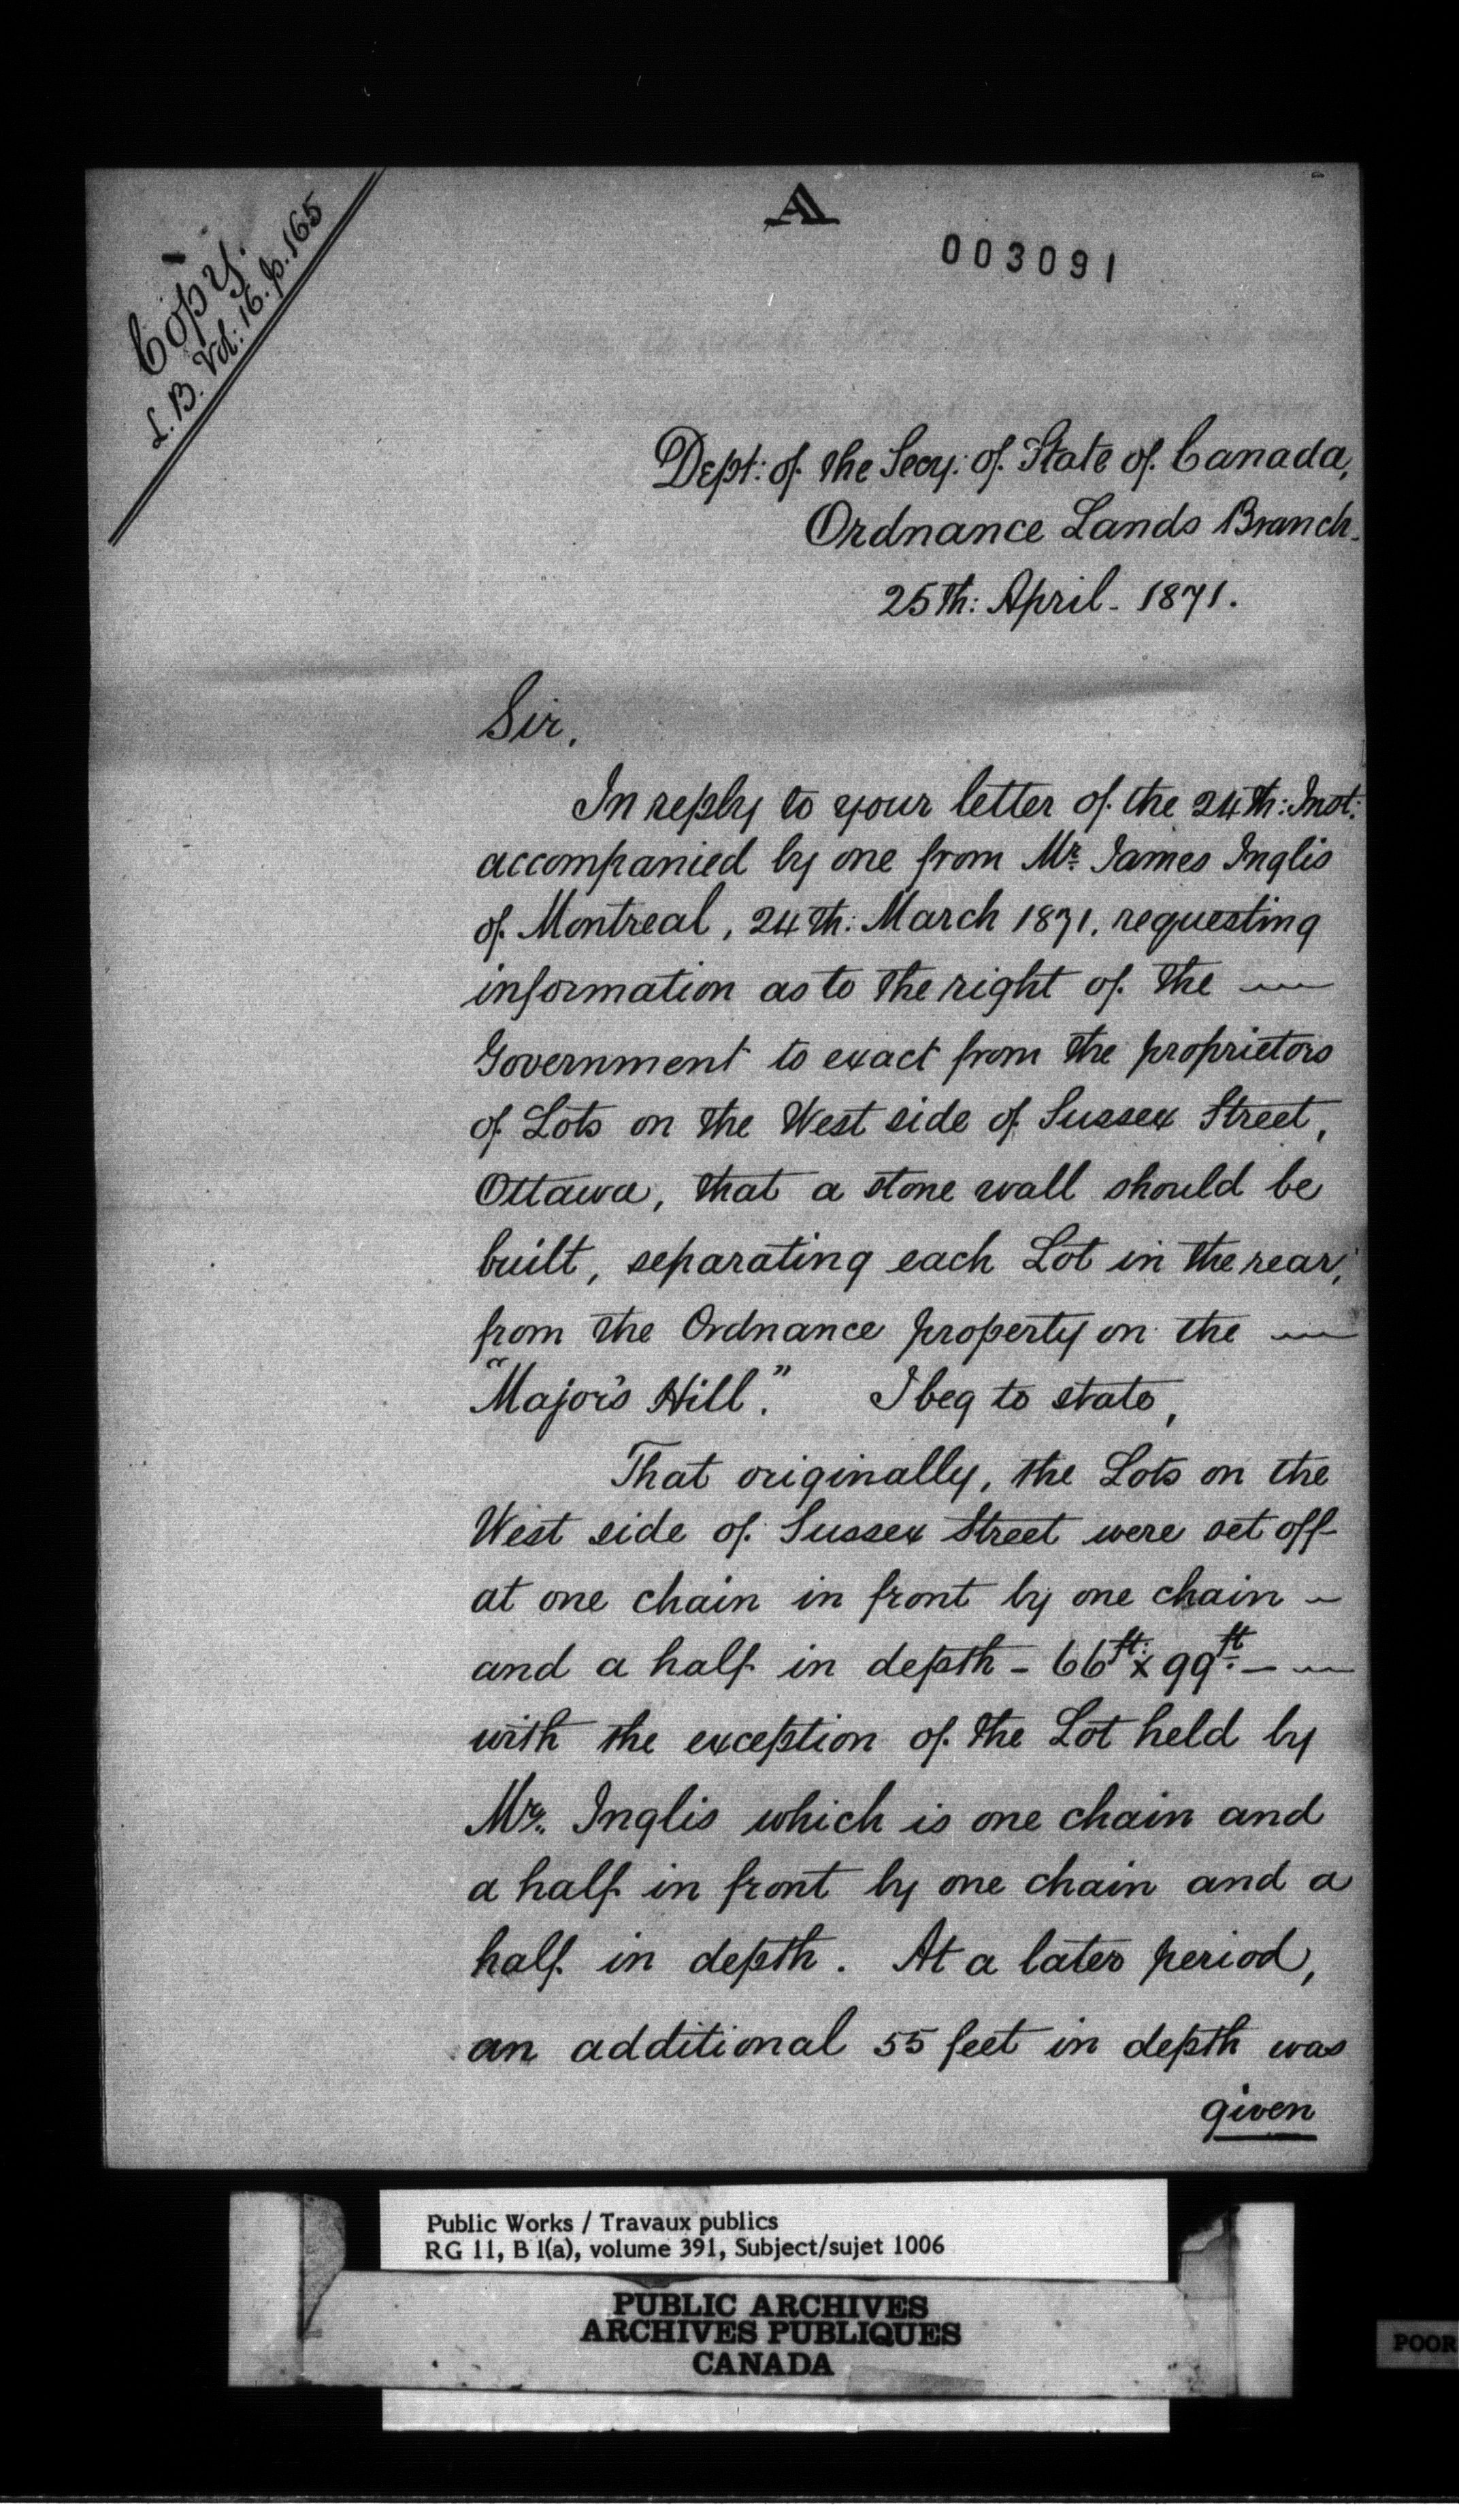 A
003091
Copy.
L.B. Vol: 16. p. 165
Dept: of the Secy: of State of Canada,
Ordnance Lands Branch.
25th: April - 1871.
Sir,
In reply to your letter of the 24th: Inst:
accompanied by one from Mr. James Inglis
of Montreal, 24th: March 1871, requesting
information as to the right of the —
Government to exact from the proprietors
of Lots on the West side of Sussex Street,
Ottawa, that a stone wall should be
built, separating each Lot in the rear,
from the Ordnance property on the —
"Major's Hill." I beg to state,
That originally, the Lots on the
West side of Sussex Street were set off
at one chain in front by one chain -
and a half in depth - 66ft: x 99ft. — —
with the exception of the Lot held by
Mr. Inglis which is one chain and
a half in front by one chain and a
half in depth. At a later period,
an additional 55 feet in depth was
given
Public Works / Travaux publics
RG 11, B 1(a), volume 391, Subject/sujet 1006
PUBLIC ARCHIVES
ARCHIVES PUBLIQUES
CANADA
POOR